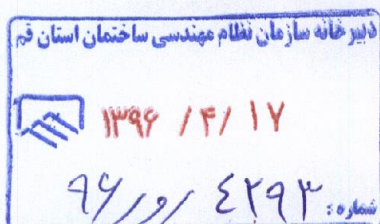 دبیرخانه سازمان نظام مهندسی ساختمان استان قم
۱۳۹۶ / ۴ / ۱۷
شماره: ۴۲۹۳ / و ر / ۹۶